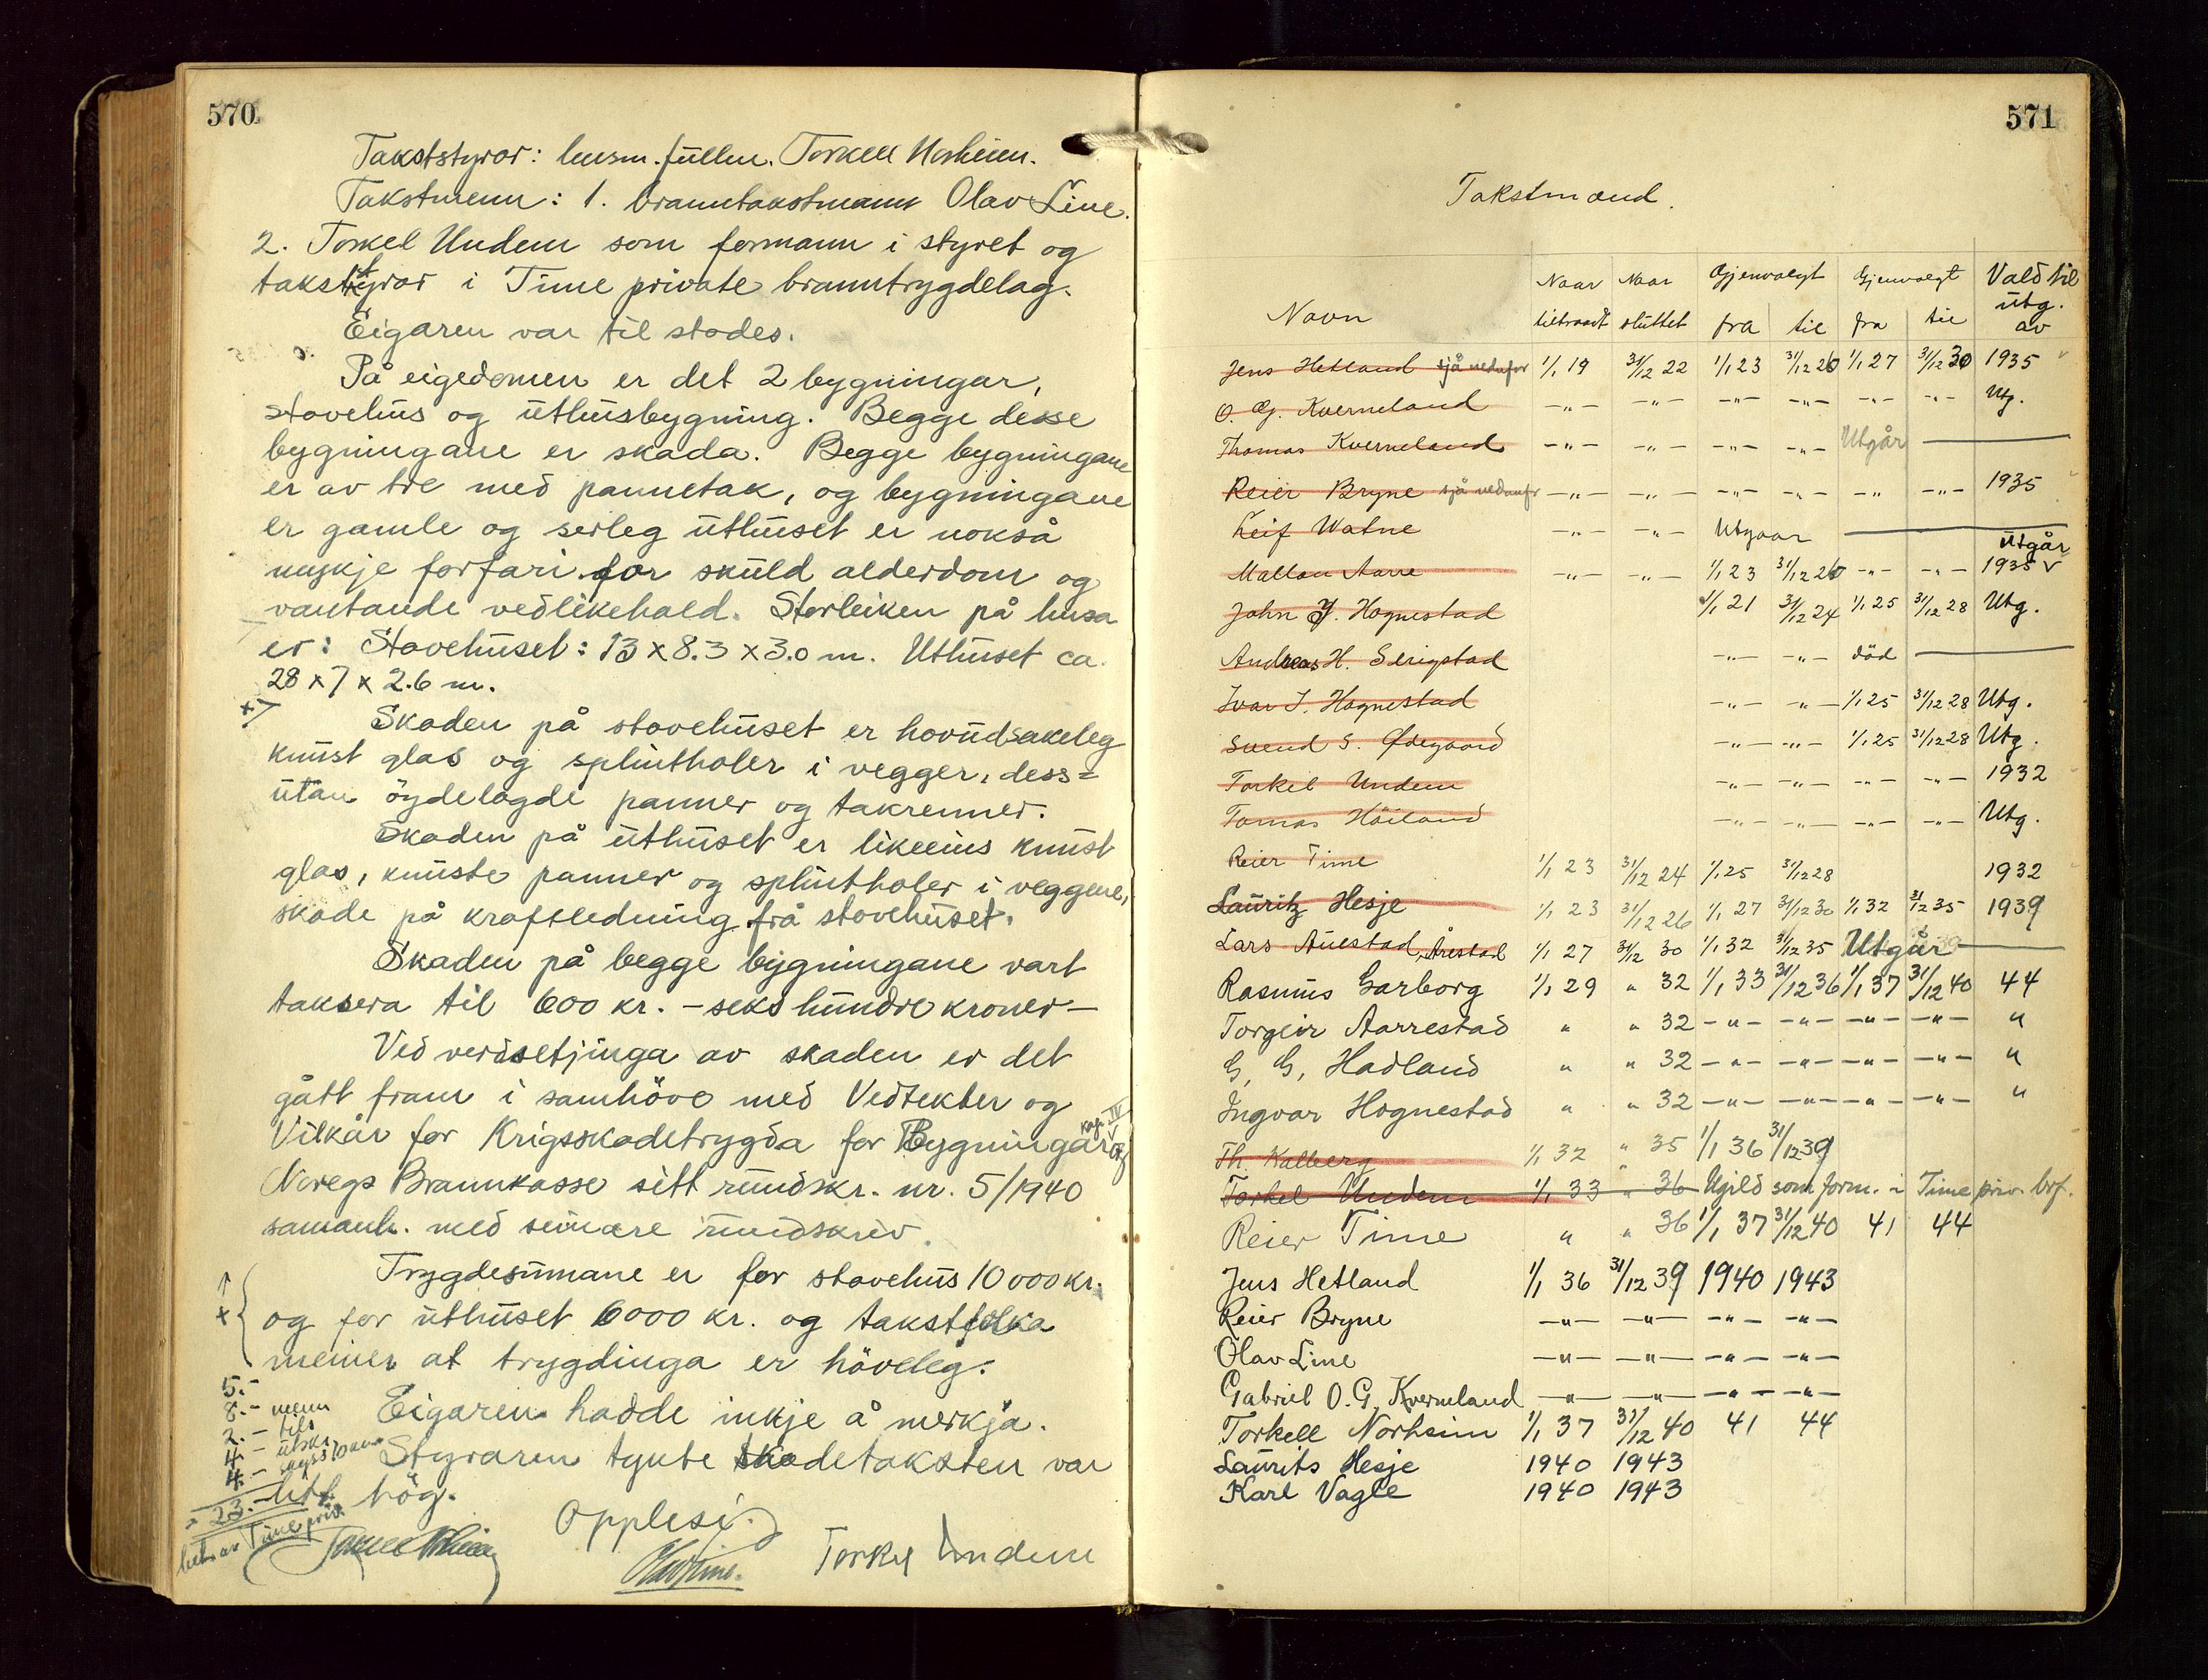 570
Takststyrar: lensm. fullm. Torkell Norheim.
Takstmenn: 1. branntakstmann Olav Line.
2. Torkel Undem som formann i styret og
takststyrar i Time private branntrygdelag.
Eigaren var til stades.
På eigedomen er det 2 bygningar,
stovehus og uthusbygning. Begge desse
bygningane er skada. Begge bygningane
er av tre med pannetak, og bygningane
er gamle og serleg uthuset er nokså
mykje forfari for skuld alderdom og
vantande vedlikehald. Storleiken på husa
er: Stovehuset: 13 x 8.3 x 3.0 m. Uthuset ca.
28 x 7 x 2.6 m.
Skaden på stovehuset er hovudsakeleg
knust glas og splintholer i vegger, dess=
utan öydelagde panner og takrenner.
Skaden på uthuset er likeeins knust
glas, knuste panner og splintholer i veggene,
skade på kraftledning frå stovehuset.
Skaden på begge bygningane vart
taksera til 600 kr. - seks hundre kroner -
Ved verdsetjinga av skaden er det
gått fram i samhöve med Vedtekter og
Vilkår for Krigsskadetrygda for Bygningar kap IV og
Noregs Brannkasse sitt rundskr. nr. 5/1940
samanh. med seinare rundskriv.
Trygdesumane er for stovehus 10 000 kr.
og for uthuset 6000 kr. og takstfolka
meiner at trygdinga er höveleg.
Eigaren hadde inkje å merkja.
Styraren tynte skadetaksten var
hög.
5.-
8.- menn
2.- tils
4.- utskr.
4.- skyss 10 km
23.-
bet. av Time priv.
Opplesi.
Olav Line.
Torkel Undem
571
Takstmænd.
Navn Naar tiltraadt Naar sluttet Gjenvalgt fra til Gjenvalgt fra til Vald til utg. av
Jens Hetland sjå nedanfor 1/1 19 31/12 22 1/1 23 31/12 26 1/1 27 31/12 30 1935
O. G. Kverneland -"- -"- -"- -"- -"- -"- Utg.
Thomas Kverneland -"- -"- -"- -"- Utgår
Reier Bryne sjå nedanfor -"- -"- -"- -"- -"- -"- 1935
Leif Watne -"- -"- Utgaar
Mallon Aarre -"- -"- 1/1 23 31/12 26 -"- -"- Utgår 1935 v
John J. Hognestad 1/1 21 31/12 24 1/1 25 31/12 28 Utg.
Andreas H. Serigstad -"- -"- död
Ivar J. Hognestad -"- -"- 1/1 25 31/12 28 Utg.
Svend S. Ødegaard -"- -"- 1/1 25 31/12 28 Utg.
Torkel Undem -"- -"- -"- -"- 1932
Tomas Höiland -"- -"- -"- -"- Utg.
Reier Time 1/1 23 31/12 24 1/1 25 31/12 28 1932
Lauritz Hesje 1/1 23 31/12 26 1/1 27 31/12 30 1/1 32 31/12 35 1939
Lars Auestad, Årestad 1/1 27 31/12 30 1/1 32 31/12 35 Utgår
Rasmus Garborg 1/1 29 " 32 1/1 33 31/12 36 1/1 37 31/12 40 44
Torgeir Aarrestad " " 32 -"- -"- -"- -"- "
G. G. Hadland " " 32 -"- -"- -"- -"- "
Ingvar Hognestad " " 32 -"- -"- -"- -"- "
Th. Kalberg 1/1 32 " 35 1/1 36 31/12 39
Torkel Undem 1/1 33 " 36 Ugild som form. i Time priv. brf.
Reier Time " " 36 1/1 37 31/12 40 41 44
Jens Hetland 1/1 36 31/12 39 1940 1943
Reier Bryne -"- -"- -"- -"-
Olav Line -"- -"- -"- -"-
Gabriel O.G. Kverneland -"- -"- -"- -"-
Torkell Norheim 1/1 37 31/12 40 41 44
Laurits Hesje 1940 1943
Karl Vagle 1940 1943